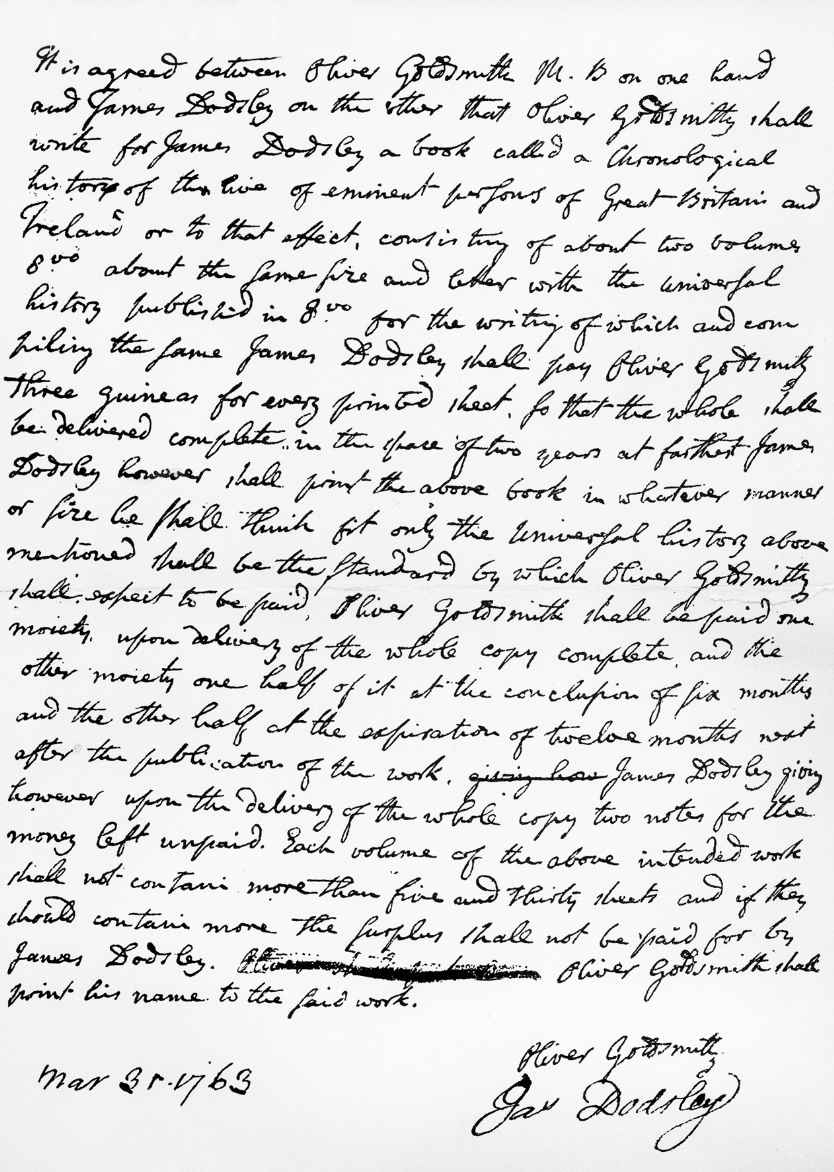 It is agreed between Oliver Goldsmith M. B on one hand
and James Dodsley on the other that Oliver Goldsmith shall
write for James Dodsley a book called a Chronological
history of the live of eminent persons of Great Britain and
Ireland or to that effect, consisting of about two volumes
8vo about the same size and letter with the universal
history published in 8vo for the writing of which and com
piling the same James Dodsley shall pay Oliver Goldsmith
three guineas for every printed sheet, so that the whole shall
be delivered complete in the space of two years at farthest James
Dodsley however shall print the above book in whatever manner
or size he shall think fit only the Universal history above
mentioned shall be the standard by which Oliver Goldsmith
shall expect to be paid, Oliver Goldsmith shall be paid one
moiety upon delivery of the whole copy complete, and the
other moiety one half of it at the conclusion of six months
and the other half at the expiration of twelve months next
after the publication of the work, giving how James Dodsley giving
however upon the delivery of the whole copy two notes for the
money left unpaid. Each volume of the above intended work
shall not contain more than five and thirty sheets and if they
should contain more the surplus shall not be paid for by
James Dodsley. Oliver Goldsmith shall
print his name to the said work.
Oliver Goldsmith
Mar 31. 1763
Jas Dodsley